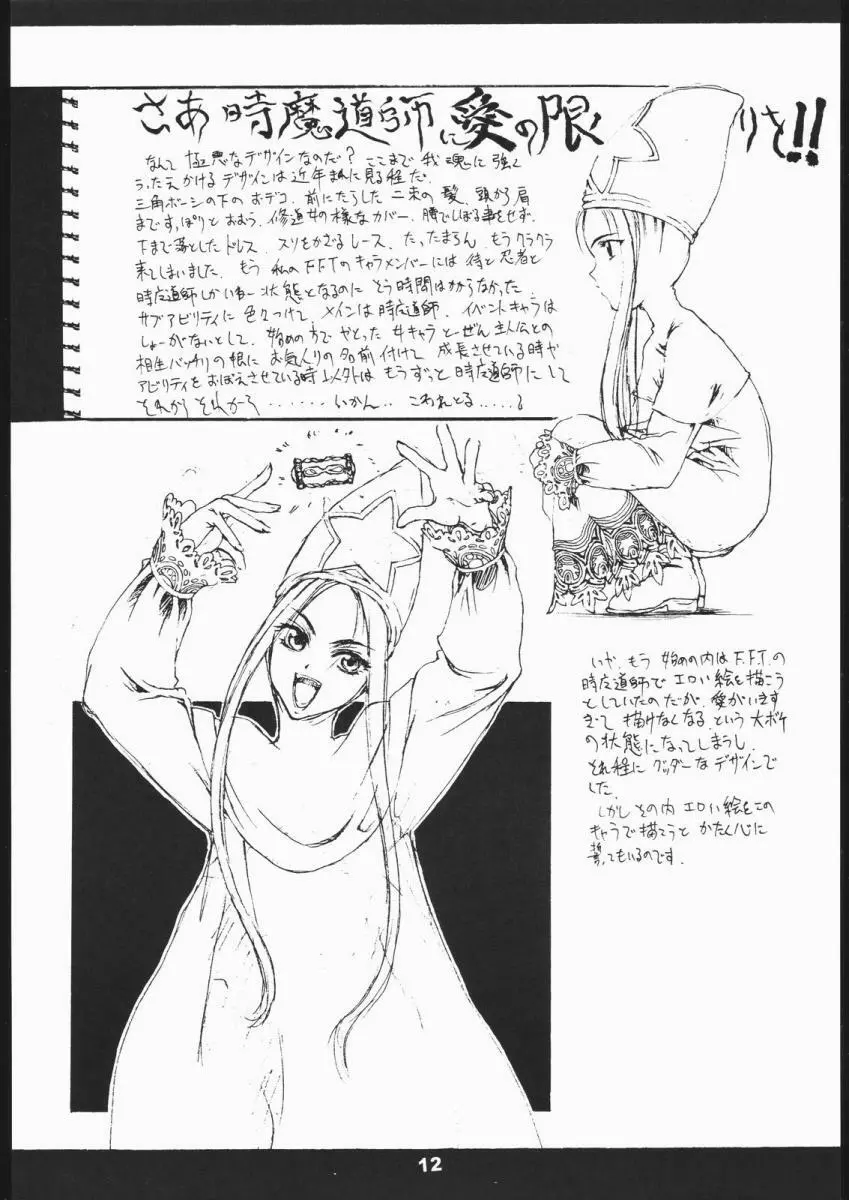 さあ時魔道師に愛の限りを!!
なんて極悪なデザインなのだ？ここまで我魂に強く
うったえかけるデザインは近年まれに見る程だ.
三角ボーシの下のおデコ、前にたらした二束の髪、頭から肩
まですっぽりとおおう、修道女の様なカバー、腰でしぼる事をせず、
下まで落としたドレス スソをかざるレース、たったまらん、もうクラクラ
来てしまいました、もう私のF.F.Tのキャラメンバーには侍と忍者と
時魔道師しかいねー状態となるのにそう時間はかからなかった、
サブアビリティに色々つけて、メインは時魔道師、イベントキャラは
しょーがないとして、始めの方でやとった女キャラとーぜん主人公との
相性バッチリの娘にお気に入りの名前付けて 成長させている時や
アビリティをおぼえさせている時以外は もうずっと時魔道師にして
それから それから・・・・・・いかん・・こわれとる・・・・・
いや、もう始めの内はF.F.T.の
時魔道師でエロい絵を描こう
としていたのだが、愛がいきす
ぎて描けなくなる、という大ボケ
の状態になってしまうし、
それ程にグッダーなデザインで
した.
しかしその内エロい絵をこの
キャラで描こうと かたく心に
誓ってもいるのです.
12